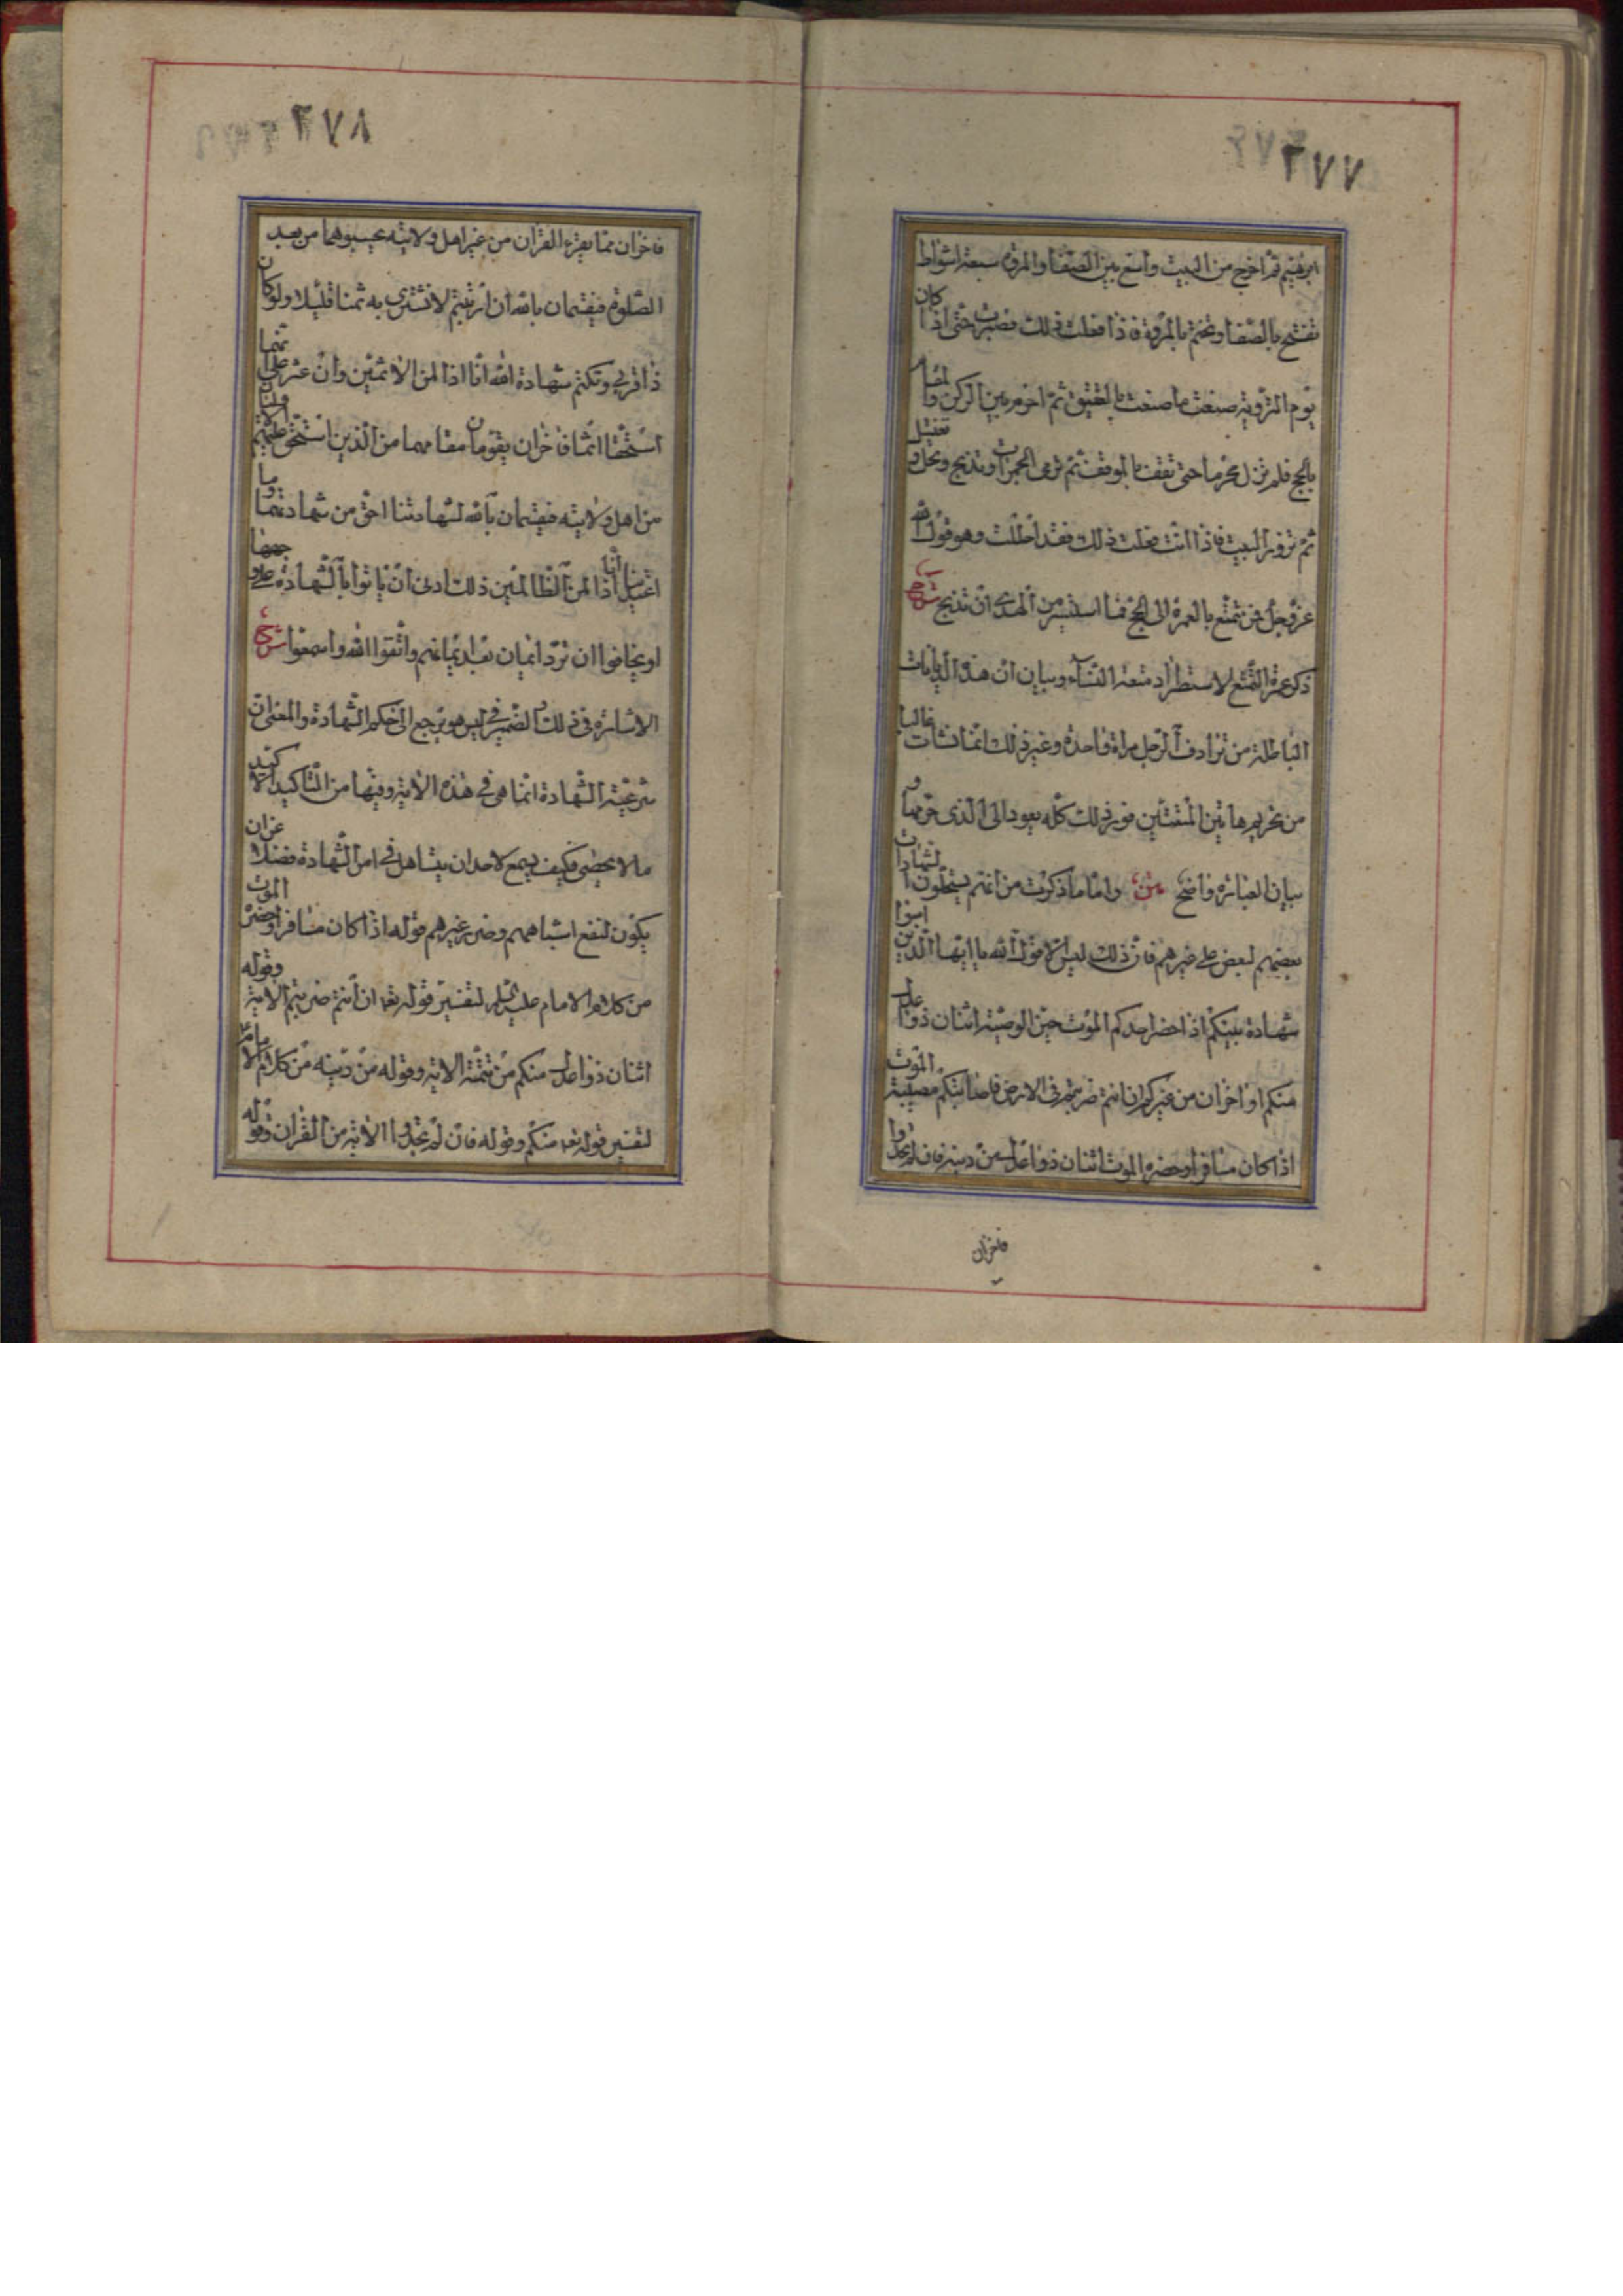 ٢٧٧
ابرهيم ثم اخرج من البيت واسع بين الصفا والمروة سبعة اشواط
تفتتح بالصفا وتختم بالمروة فاذا فعلت ذلك فصبرت حتى اذا كان
يوم التروية صنعت ما صنعت بالعقيق ثم احرم بين الركن والمقام
بالحج فلم تزل محرما حتى تقف بالموقف ثم ترمى الجمرات وتذبح وتحل وتغتسل
ثم تزور البيت فاذا انت فعلت ذلك فقد احللت وهو قول الله
عز وجل فمن تمتع بالعمرة الى الحج فما استيسر من الهدى ان تذبح شرح
ذكر عمرة التمتع لاستطراد متعة النساء وبيان ان هذه الديانات
الباطلة من ترادف الرجل مراة واحدة وغير ذلك انما نشات غالبا
من تحريم هاتين المتعتين فوزر ذلك كله يعود الى الذى حرمهما و
بيان العبارة واضح متن واما ما ذكرت من انهم يستحلون الشهادات
بعضهم لبعض على غيرهم فان ذلك ليس الا قول الله يا ايها الذين امنوا
شهادة بينكم اذا حضر احدكم الموت حين الوصية اثنان ذوا عدل
منكم او اخران من غيركم ان انتم ضربتم فى الارض فاصابتكم مصيبة الموت
اذا كان مسافرا وحضره الموت اثنان ذوا عدل من دينه فان لم يجدوا
فاخران
٢٧٨
فاخران مما يقرء القران من غير اهل ولايته تحبسونهما من بعد
الصلوة فيقسمان بالله ان ارتبتم لا نشترى به ثمنا قليلا ولو كان
ذا قربى ونكتم شهادة الله انا اذا لمن الاثمين وان عثر على انهما
استحقا اثما فاخران يقومان مقامهما من الذين استحق عليهم الاوليان
من اهل ولايته فيقسمان بالله لشهادتنا احق من شهادتهما وما
اعتدينا انا اذا لمن الظالمين ذلك ادنى ان ياتوا بالشهادة على وجهها
او يخافوا ان ترد ايمان بعد ايمانهم واتقوا الله واسمعوا شرح
الاشارة فى ذلك والضمير فى ليس هو يرجع الى حكم الشهادة والمعنى ان
شرعية الشهادة انما هى فى هذه الاية وفيها من التاكيد الاكيد
ما لا يحصى فكيف يسمع لاحد ان يتساهل فى امر الشهادة فضلا عن ان
يكون لنفع اشباههم وضرر غيرهم قوله اذا كان مسافرا وحضره الموت
من كلام الامام عليه السلم لتفسير قوله تعه ان انتم ضربتم الاية وقوله
اثنان ذوا عدل منكم من تتمة الاية وقوله من دينه من كلام الامام ع
لتفسير قوله تعه منكم وقوله فان لم يجدوا الاية من القران وقوله